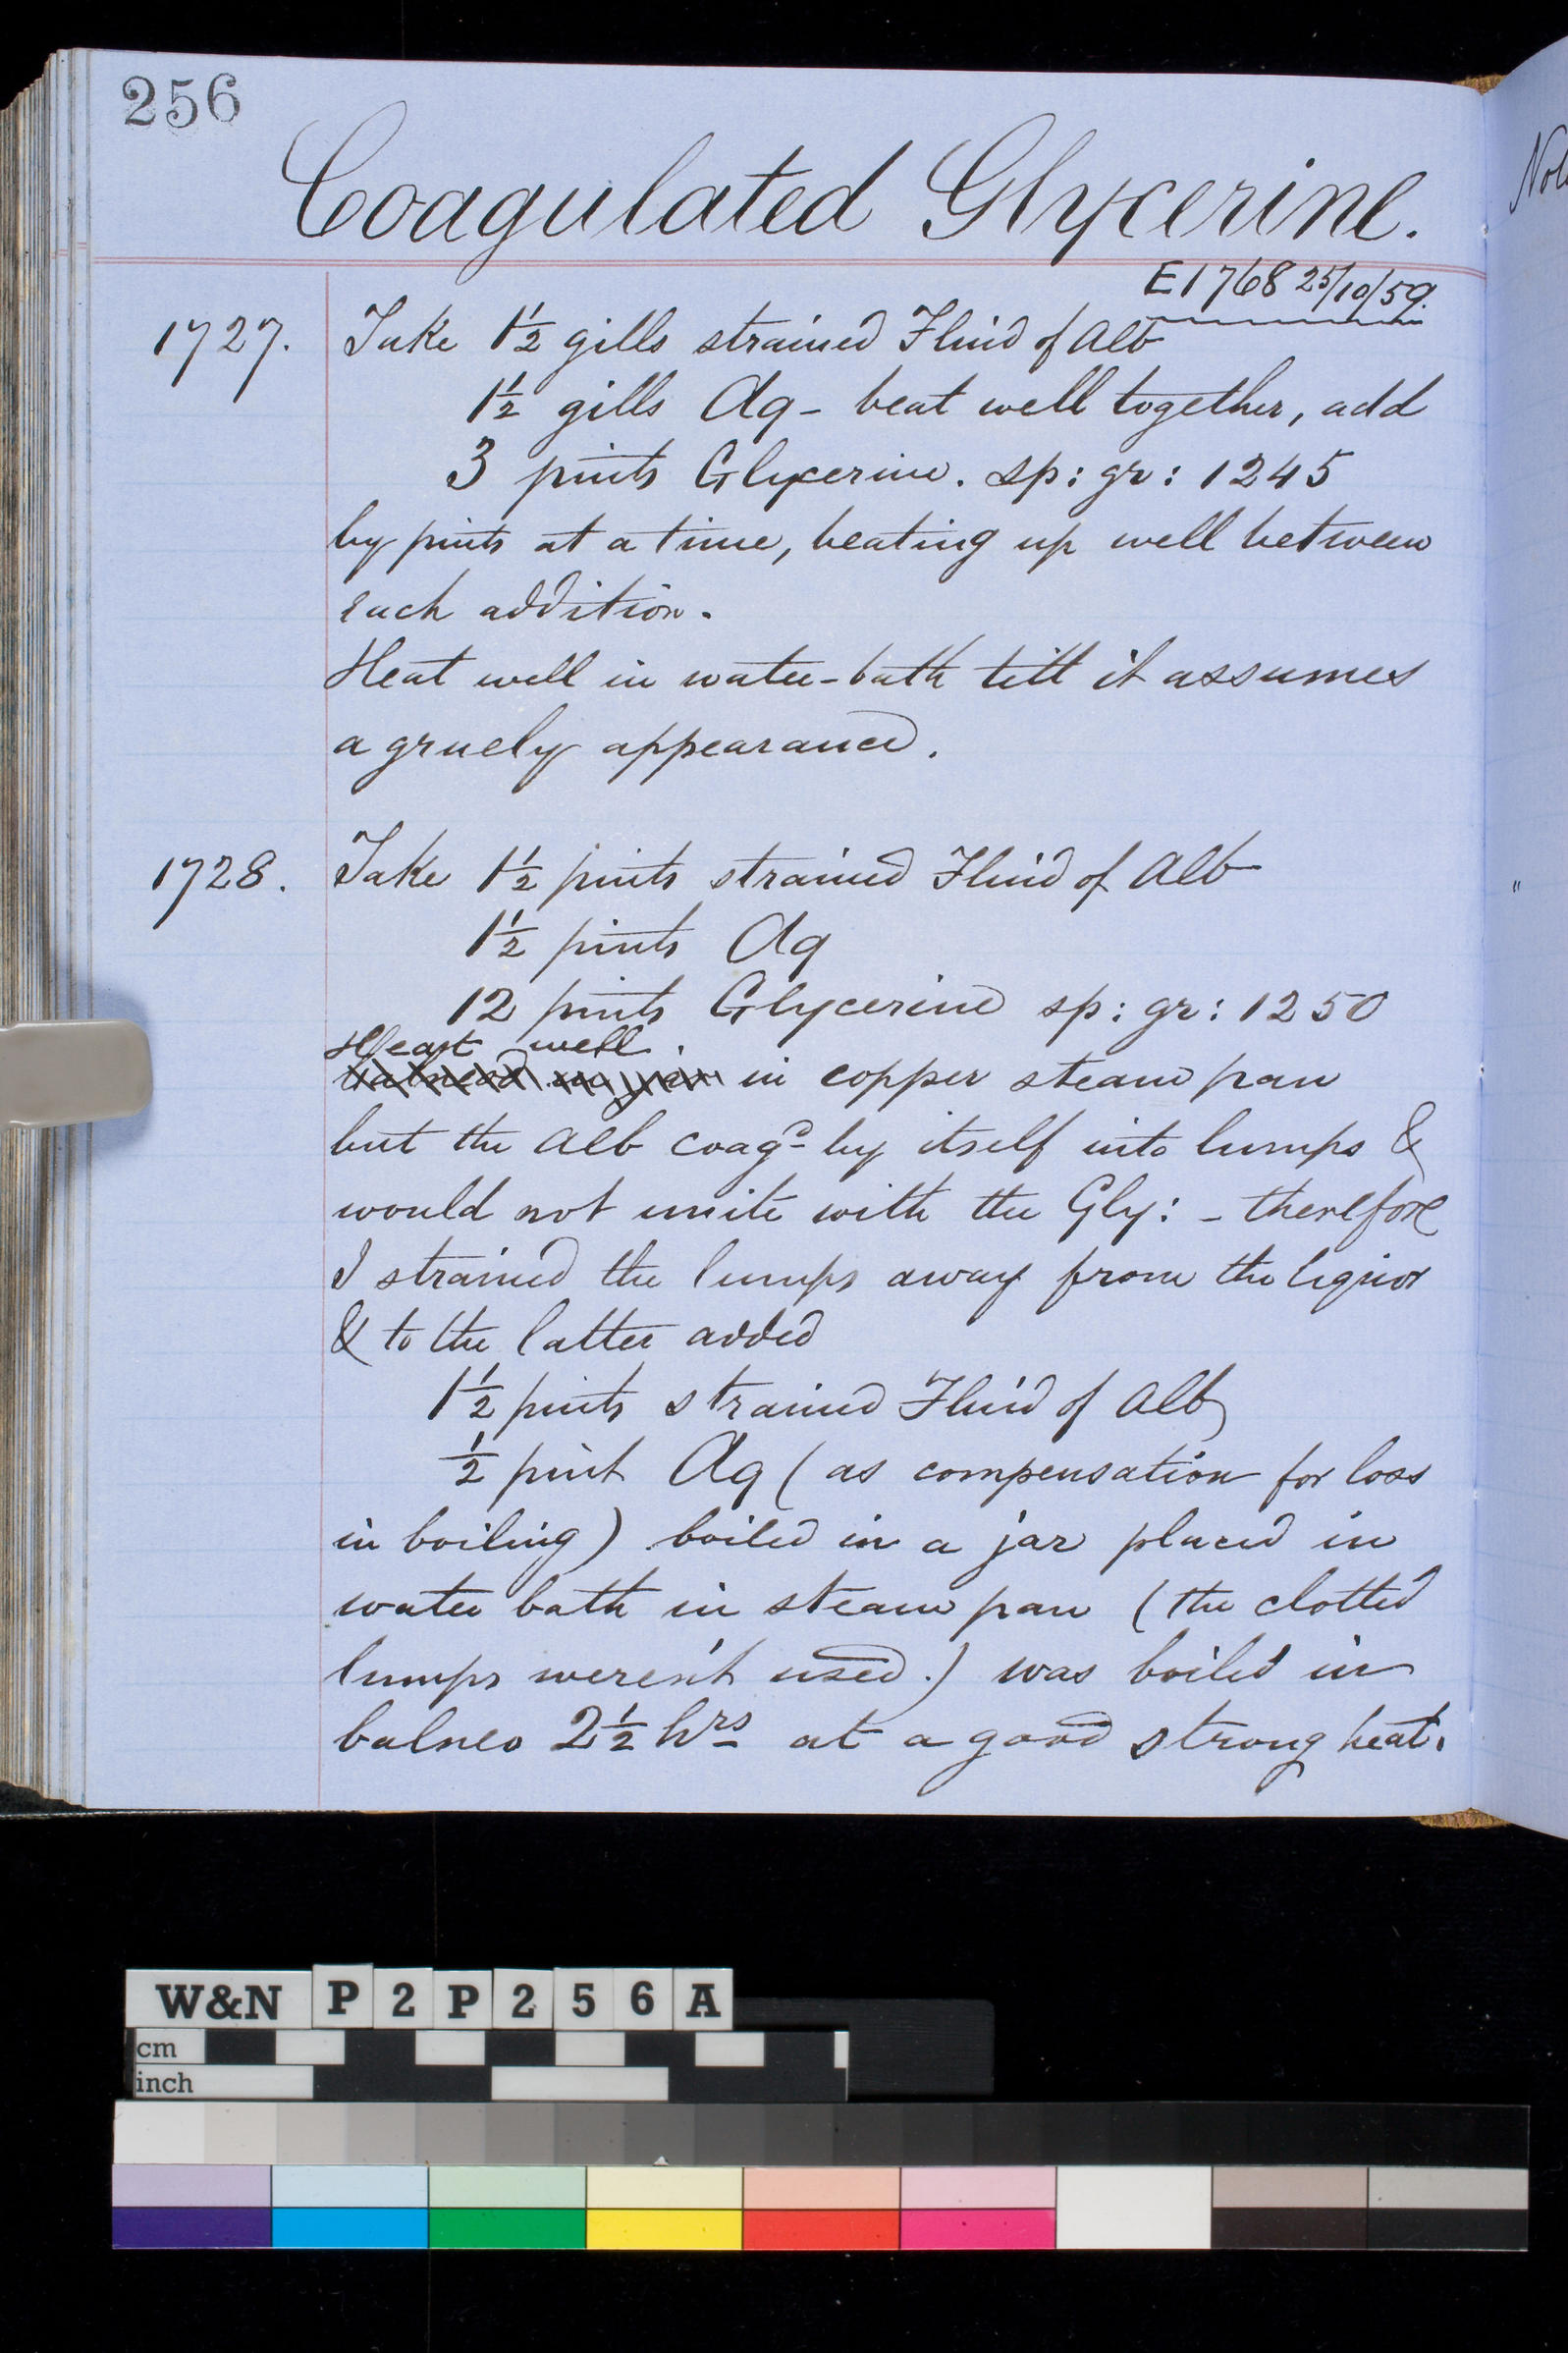 256
Coagulated Glycerine.
E1768 25/10/59.
1727. Take 1½ gills strained Fluid of Alb
1½ gills Aq - beat well together, add
3 pints Glycerine. sp: gr: 1245
by pints at a time, beating up well between
each addition.
Heat well in water-bath till it assumes
a gruely appearance.
1728. Take 1½ pints strained Fluid of Alb
1½ pints Aq
12 pints Glycerine sp: gr: 1250
Heat well
in copper steam pan
but the Alb coagd by itself into lumps &
would not unite with the Gly: - therefore
I strained the lumps away from the liquor
& to the latter added
1½ pints strained Fluid of Alb
½ pint Aq (as compensation for loss
in boiling) boiled in a jar placed in
water bath in steam pan (the clotted
lumps weren't used.) was boiled in
balneo 2½ hrs at a good strong heat.
W&N P2P256A
cm
inch